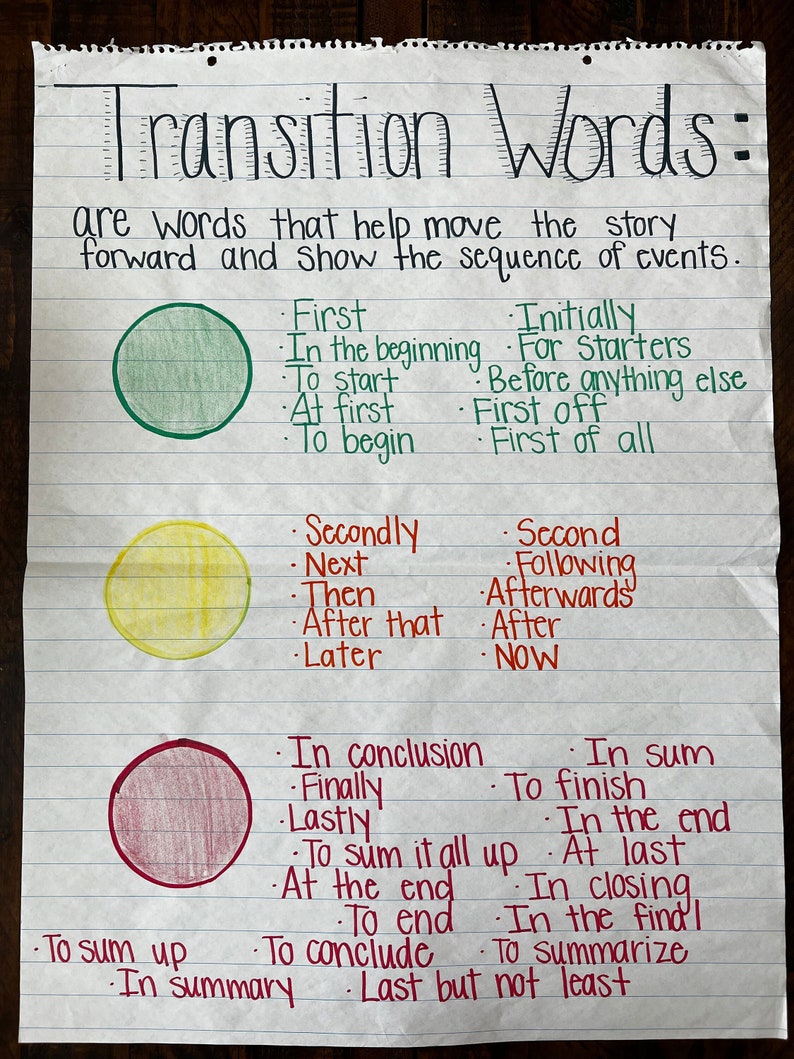 Transition Words:
are words that help move the story
forward and show the sequence of events.
· First · Initially
· In the beginning · For starters
· To start · Before anything else
· At first · First off
· To begin · First of all
· Secondly · Second
· Next · Following
· Then · Afterwards
· After that · After
· Later · NOW
· In conclusion · In sum
· Finally · To finish
· Lastly · In the end
· To sum it all up · At last
· At the end · In closing
· To end · In the final
· To sum up · To conclude · To summarize
· In summary · Last but not least